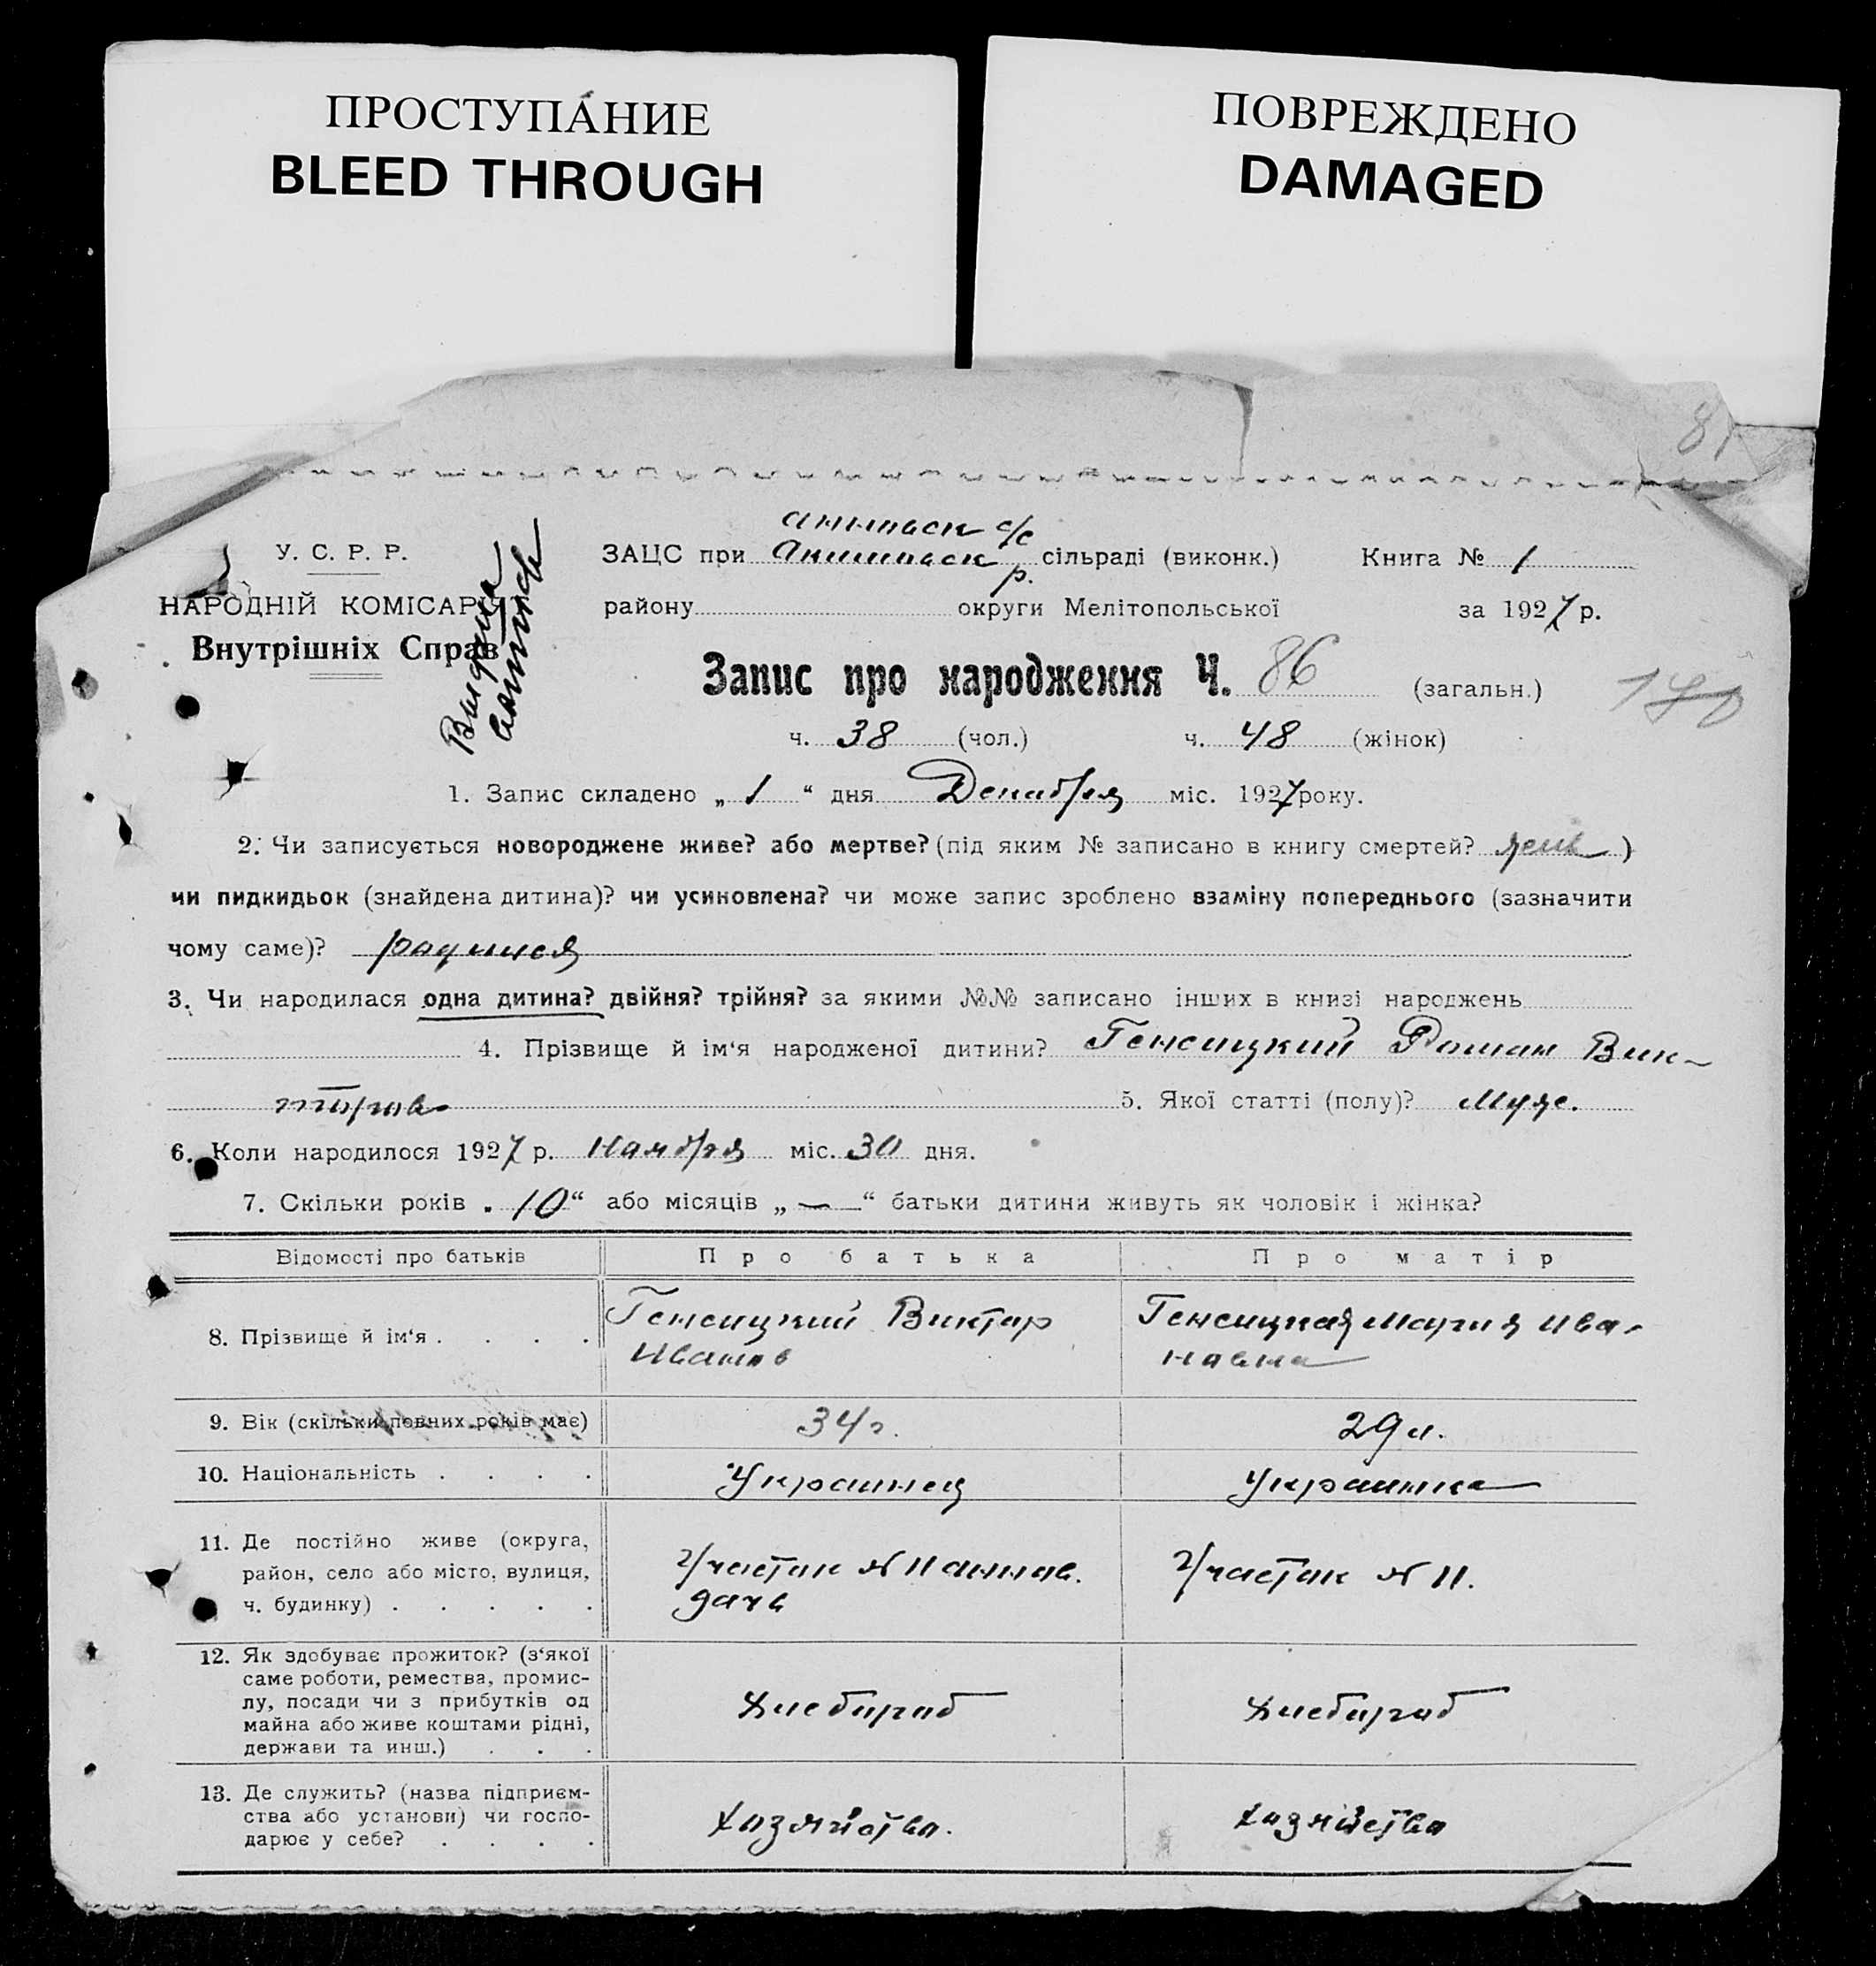 ПРОСТУПАНИЕ
BLEED THROUGH
ПОВРЕЖДЕНО
DAMAGED
81
У. С. Р. Р.
НАРОДНІЙ КОМІСАРІЯТ
Внутрішніх Справ
с/с
ЗАЦС при сільраді (виконк.) Книга № 1
р.
району округи Мелітопольської за 1927 р.
Запис про народження Ч. 86 (загальн.)
ч. 38 (чол.) ч. 48 (жінок)
1. Запис складено „ 1 “ дня Декабря міс. 1927 року.
2. Чи записується новороджене живе? або мертве? (під яким № записано в книгу смертей? )
чи пидкидьок (знайдена дитина)? чи усиновлена? чи може запис зроблено взаміну попереднього (зазначити
чому саме)? родился
3. Чи народилася одна дитина? двійня? трійня? за якими №№ записано інших в книзі народжень
4. Прізвище й ім‘я народженої дитини? Генсицкий Роман Вик-
торов 5. Якої статті (полу)? Муж.
6. Коли народилося 1927 р. Ноября міс. 30 дня.
7. Скільки років „ 10 “ або місяців „ — “ батьки дитини живуть як чоловік і жінка?
Відомості про батьків Про батька Про матір
8. Прізвище й ім‘я . . . . Генсицкий Виктор Иванов Генсицкая Мария Ивановна
9. Вік (скільки повних років має) 34 г. 29 л.
10. Національність . . . . Украинец Украинка
11. Де постійно живе (округа,
район, село або місто, вулиця,
ч. будинку) . . . . . Участок № 11 дача Участок № 11.
12. Як здобуває прожиток? (з‘якої
саме роботи, ремества, промис-
лу, посади чи з прибутків од
майна або живе коштами рідні,
держави та инш.) . . . Хлебороб Хлебороб
13. Де служить? (назва підприєм-
ства або установи) чи госпо-
дарює у себе? . . . . Хозяйство. Хозяйство